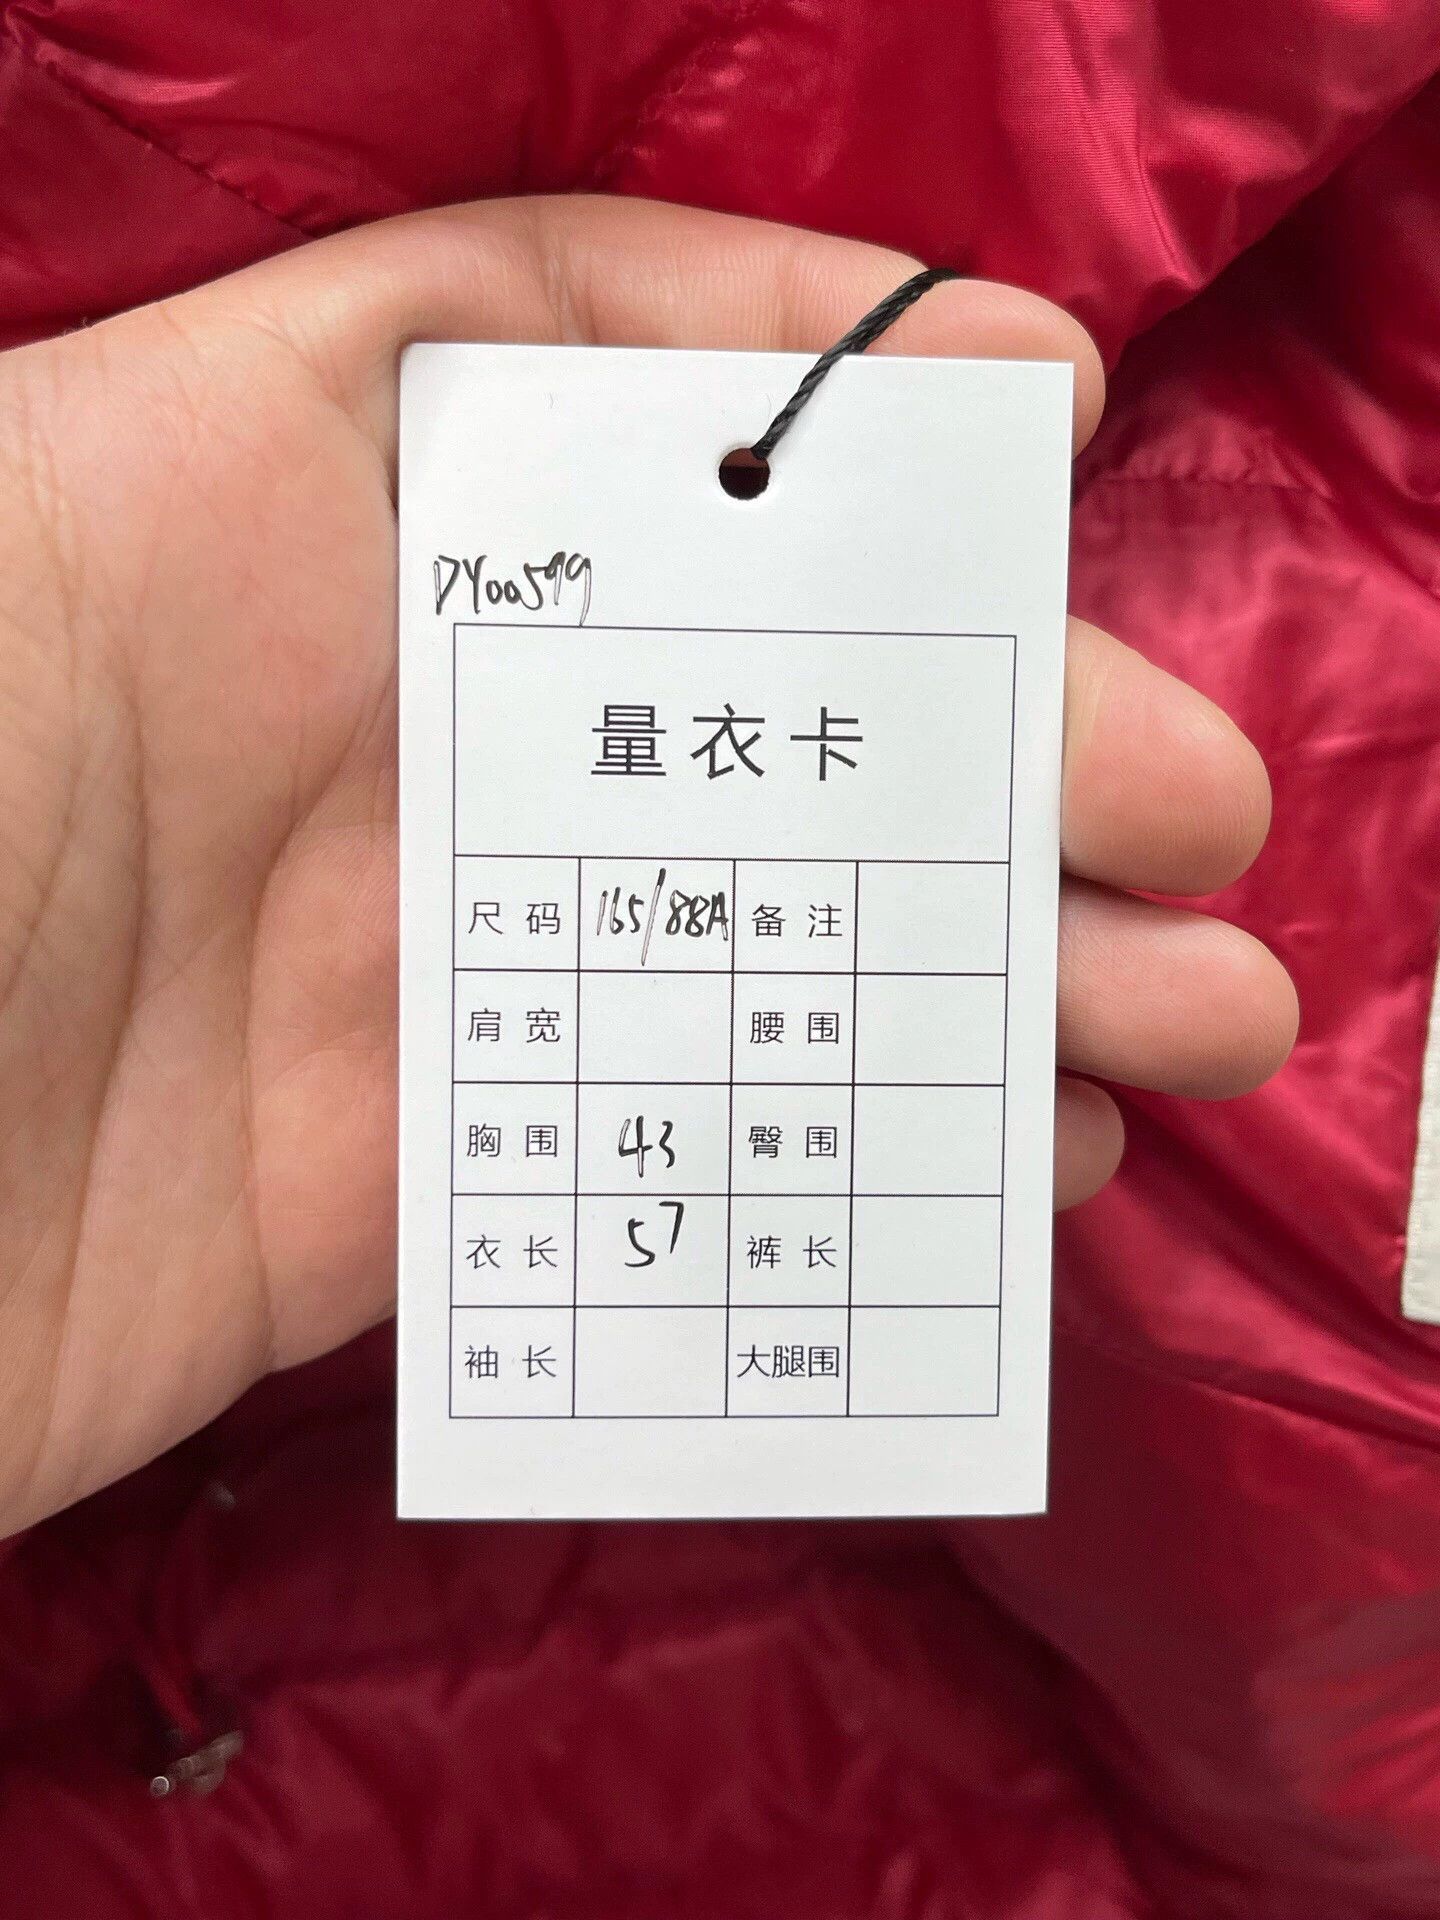 DY00599
量衣卡
尺码 165/88A 备注
肩宽 腰围
胸围 43 臀围
衣长 57 裤长
袖长 大腿围